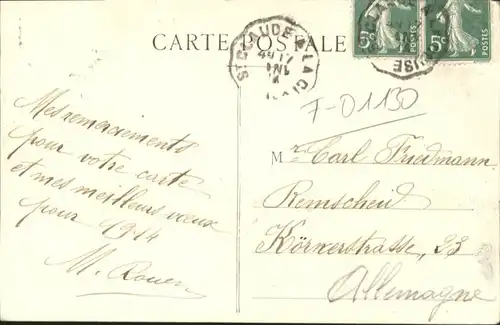 CARTE POSTALE
5c POSTES
5c POSTES
F-D1130
Mes remerciements
pour votre carte
et mes meilleurs vœux
pour 1914
M. Rouen
Mr Carl Friedmann
Remscheid
Körnerstrasse, 23
Allemagne